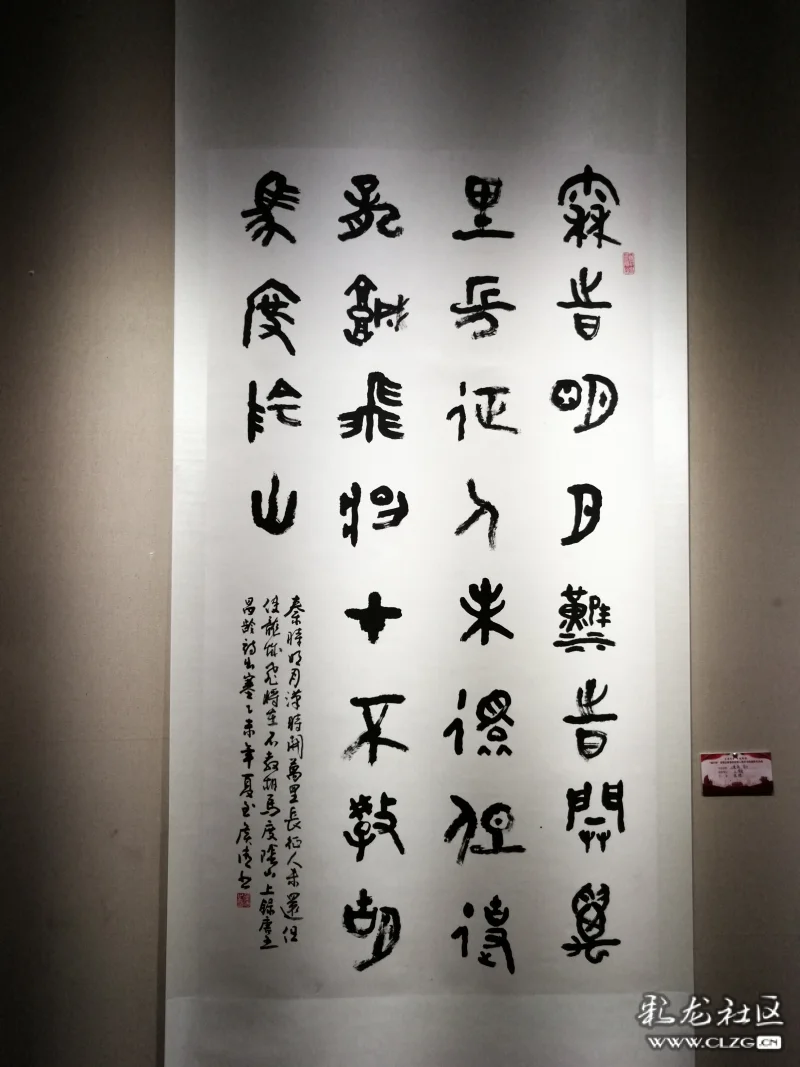 秦時明月漢時關萬
里長征人未還但使
龍城飛將在不教胡
馬度陰山
秦時明月漢時關萬里長征人未還但
使龍城飛將在不教胡馬度陰山上錄唐王
昌齡詩出塞乙未年夏至
彩龙社区
WWW.CLZG.CN